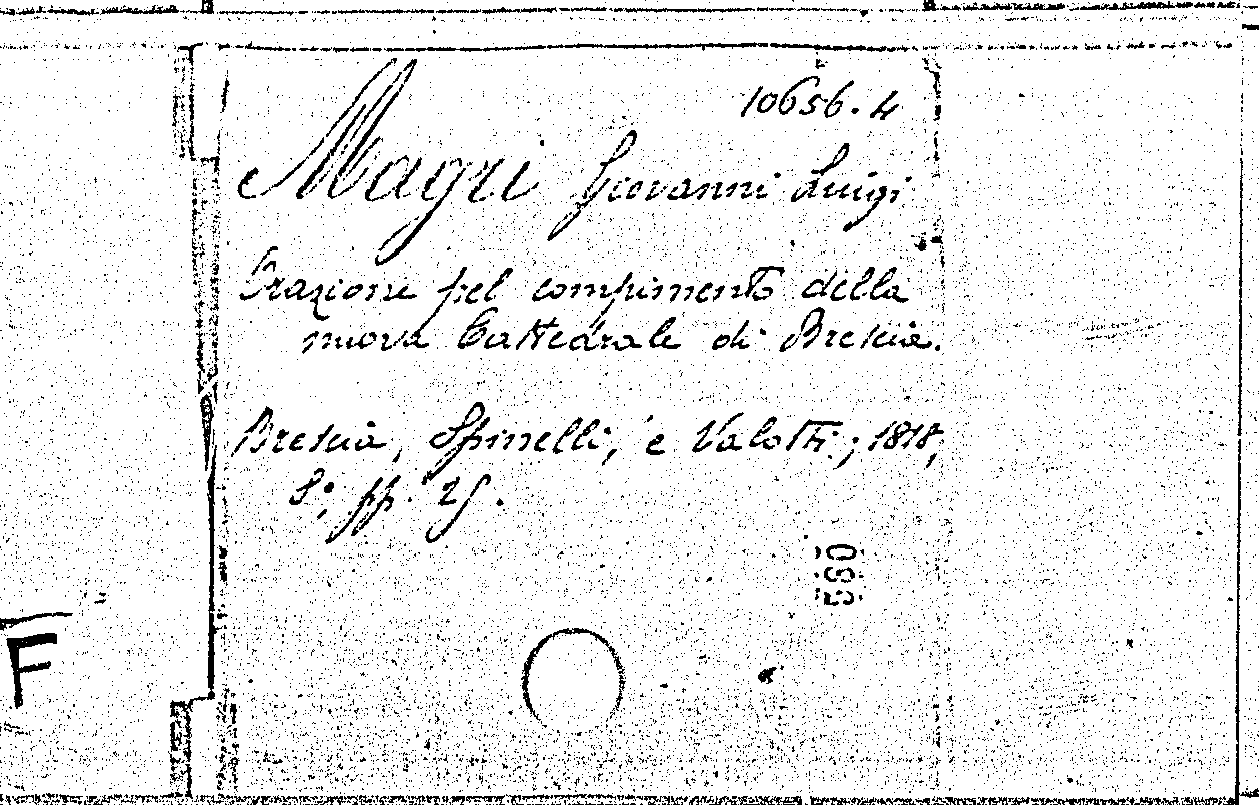 10656.4
Magri Giovanni Luigi
Orazione pel compimento della
nuova Cattedrale di Brescia.
Brescia, Spinelli, e Valotti; 1818,
8°, pp. 25.
560
F